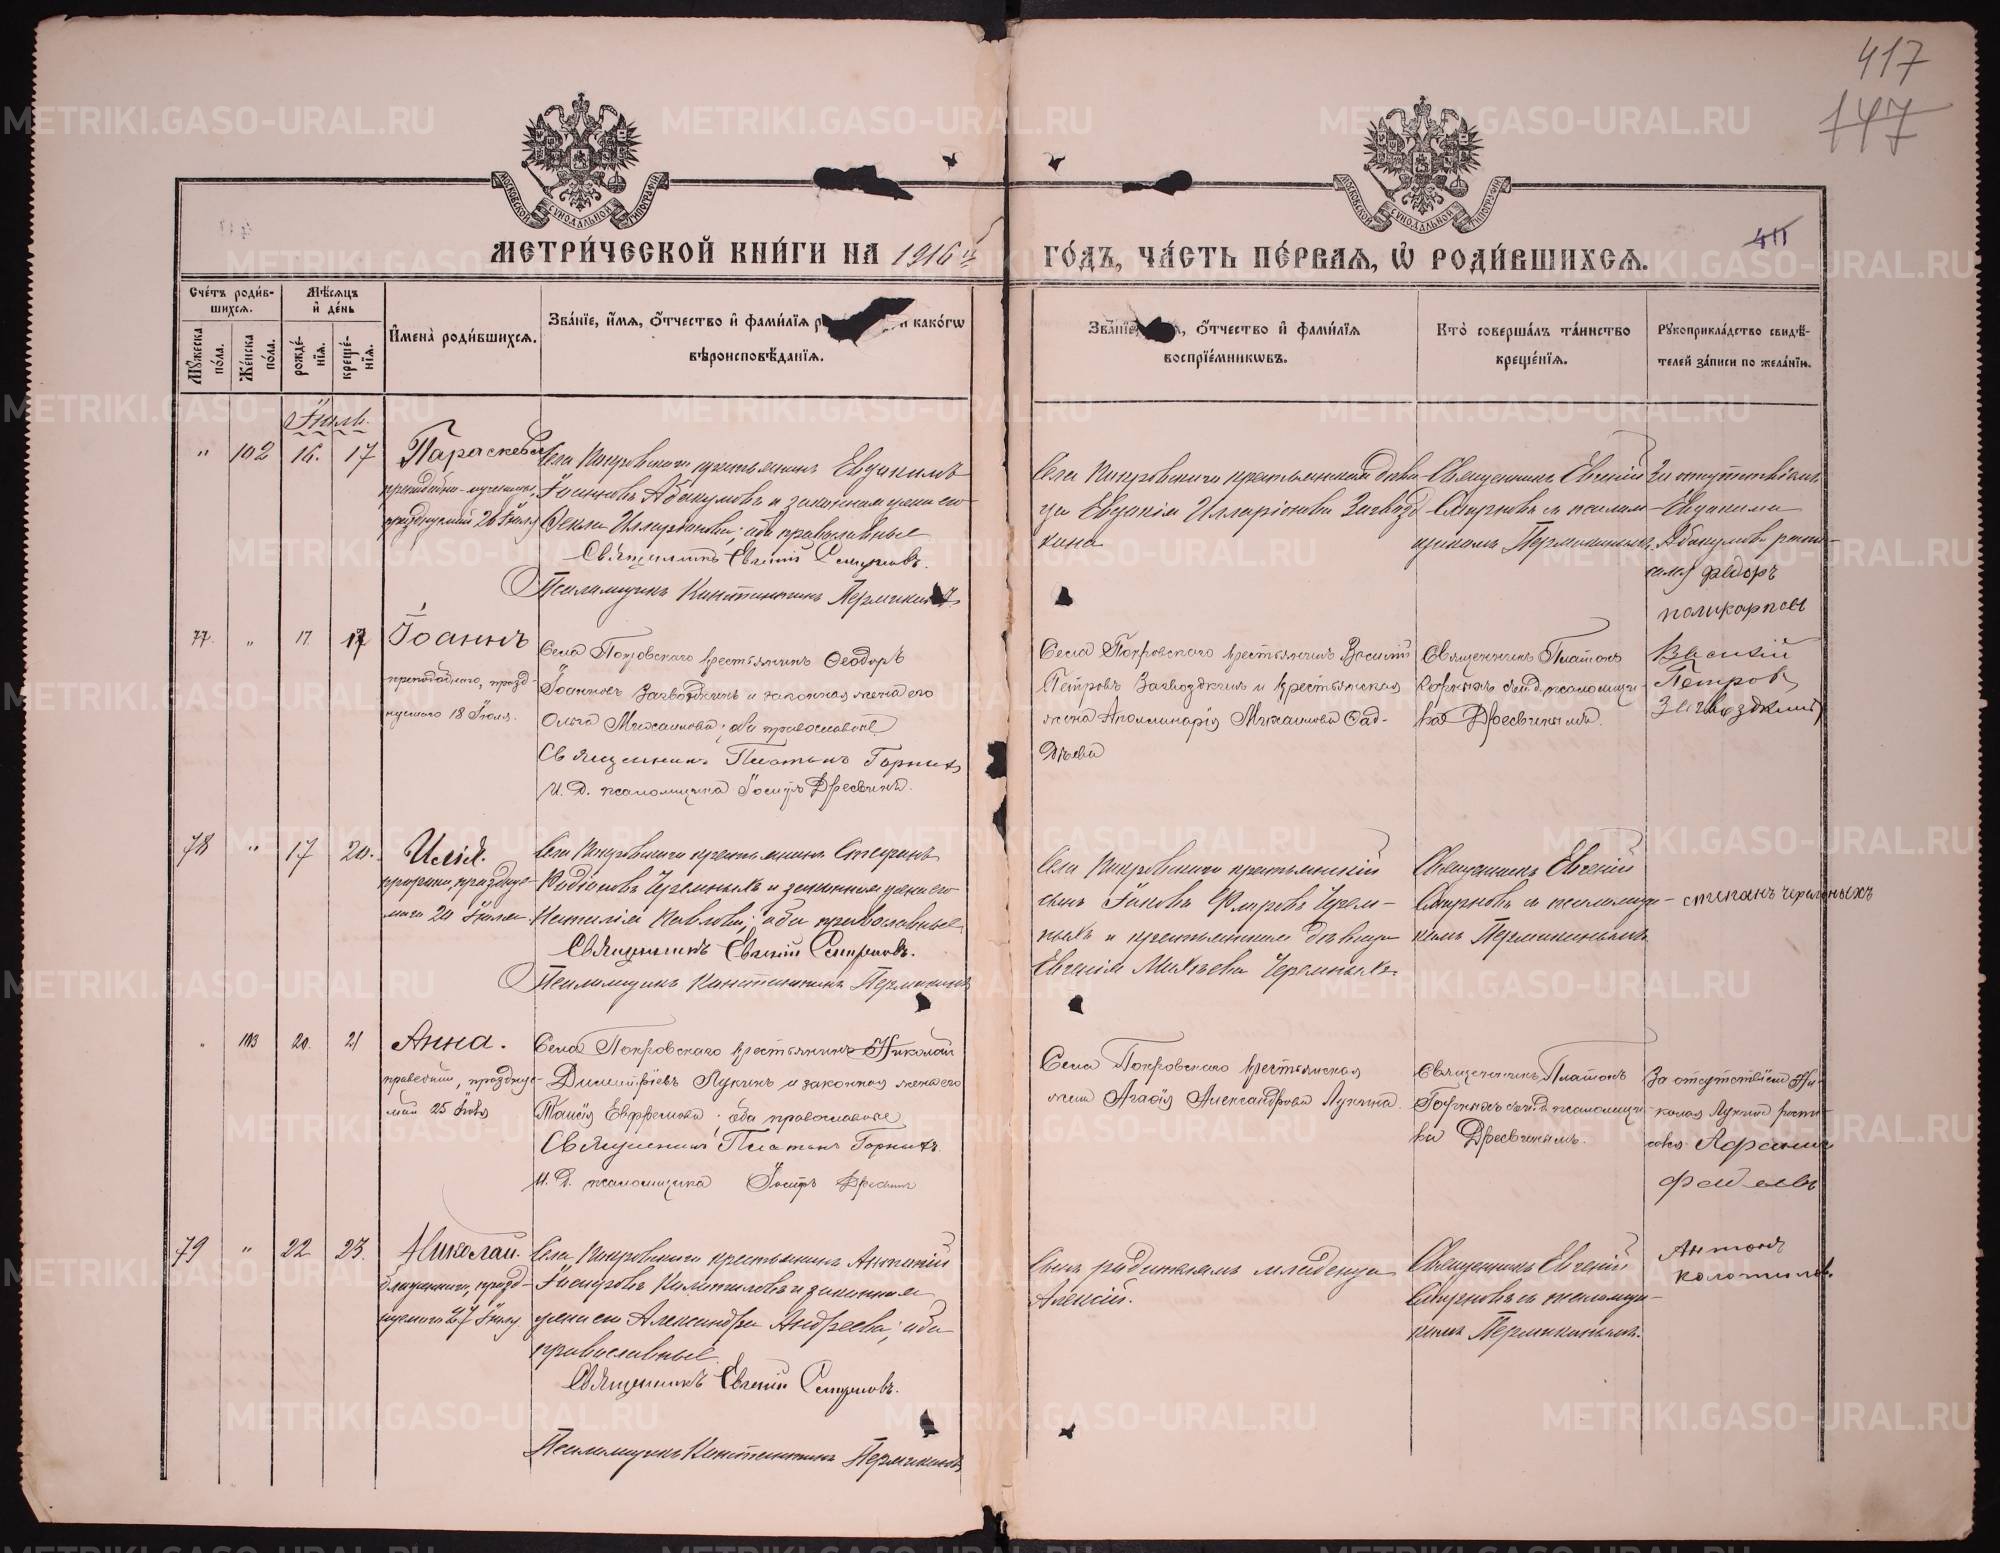 417
147
411
МОСКОВСКОЙ СУНОДАЛЬНОЙ ТИПОГРАФІИ
МОСКОВСКОЙ СУНОДАЛЬНОЙ ТИПОГРАФІИ
МЕТРИ́ЧЕСКОЙ КНИ́ГИ НА 1916й ГО́ДЪ, ЧА́СТЬ ПЕ́РВАѦ, Ѡ҆ РОДИ́ВШИХСѦ.
Сче́тъ роди́в-
шихсѧ.
Мѣ́сѧцъ
и҆ де́нь
Мꙋ́жеска по́ла.
Же́нска по́ла.
рожде́-
нїѧ.
креще́-
нїѧ.
И҆мена̀ роди́вшихсѧ.
Зва́нїе, и҆́мѧ, ѻ҆́тчество и҆ фами́лїѧ како́гѡ
вѣроисповѣ́данїѧ.
Зва́нїе, ѻ҆́тчество и҆ фами́лїѧ
воспрїе́мникѡвъ.
Кто̀ соверша́лъ та́инство
креще́нїѧ.
Рꙋкоприкла́дство свидѣ́-
телей за́писи по жела́нїю.
Іюль.
" 102 16. 17
Параскева
преподобно-мученицы,
празднуемой 26 Іюля
Села Покровскаго крестьянинъ Евдокимъ
Іоанновъ Абакумовъ и законная жена его
Ѳекла Илларіонова; оба православные
Священникъ Евгеній Смирновъ.
Псаломщикъ Константинъ Пермикинъ
Села Покровскаго крестьянская дѣви-
ца Евдокія Илларіонова Загвозд
кина
Священникъ Евгеній
Смирновъ съ псалом-
щикомъ Пермикинымъ
За отсутствіемъ
Евдокима
Абакумова роспи-
сался Федоръ
поликарповъ
77. " 17 17
Іоаннъ
преподобнаго, празд-
нуемаго 18 Іюля.
Села Покровскаго крестьянинъ Ѳеодоръ
Іоанновъ Загвоздкинъ и законная жена его
Ольга Михаилова; оба православные
Священникъ Платонъ Горныхъ
И. Д. псаломщика Іосифъ Дресвинъ.
Села Покровскаго крестьянинъ Василій
Петровъ Загвоздкинъ и крестьянская
жена Аполлинарія Михаилова Фад-
дѣева
Священникъ Платонъ
Горныхъ съ и. д. псаломщи-
ка Дресвинымъ.
Василій
Петровъ
Загвоздкинъ
78 " 17 20.
Илія.
пророка, празднуе-
маго 20 Іюля
Села Покровскаго крестьянинъ Стефанъ
Родіоновъ Черемныхъ и законная жена его
Наталія Павлова; оба православные
Священникъ Евгеній Смирновъ.
Псаломщикъ Константинъ Пермикинъ
Села Покровскаго крестьянскій
сынъ Іаковъ Флоровъ Черем-
ныхъ и крестьянская дѣвица
Евгенія Михѣева Черемныхъ.
Священникъ Евгеній
Смирновъ съ псаломщи-
комъ Пермикинымъ
степанъ черемныхъ
" 103 20. 21
Анна.
праведной, празднуе-
мой 25 Іюля
Села Покровскаго крестьянинъ Николай
Димитріевъ Лукинъ и законная жена его
Таисія Ефремова; оба православные
Священникъ Платонъ Горныхъ.
И. Д. псаломщика Іосифъ Дресвинъ
Села Покровскаго крестьянская
жена Агаѳія Александрова Лукина.
Священникъ Платонъ
Горныхъ съ и. д. псаломщи-
ка Дресвинымъ.
За отсутствіемъ Ни-
колая Лукина роспи-
79 " 22 23.
Николай.
блаженнаго, празд-
нуемаго 27 Іюля.
Села Покровскаго крестьянинъ Антоній
Іосифовъ Колотиловъ и законная
жена его Александра Андреева; оба
православные.
Священникъ Евгеній Смирновъ.
Псаломщикъ Константинъ Пермикинъ
Сынъ родителямъ младенца
Алексій.
Священникъ Евгеній
Смирновъ съ псаломщи-
комъ Пермикинымъ.
Антонъ
колотиловъ
METRIKI.GASO-URAL.RU